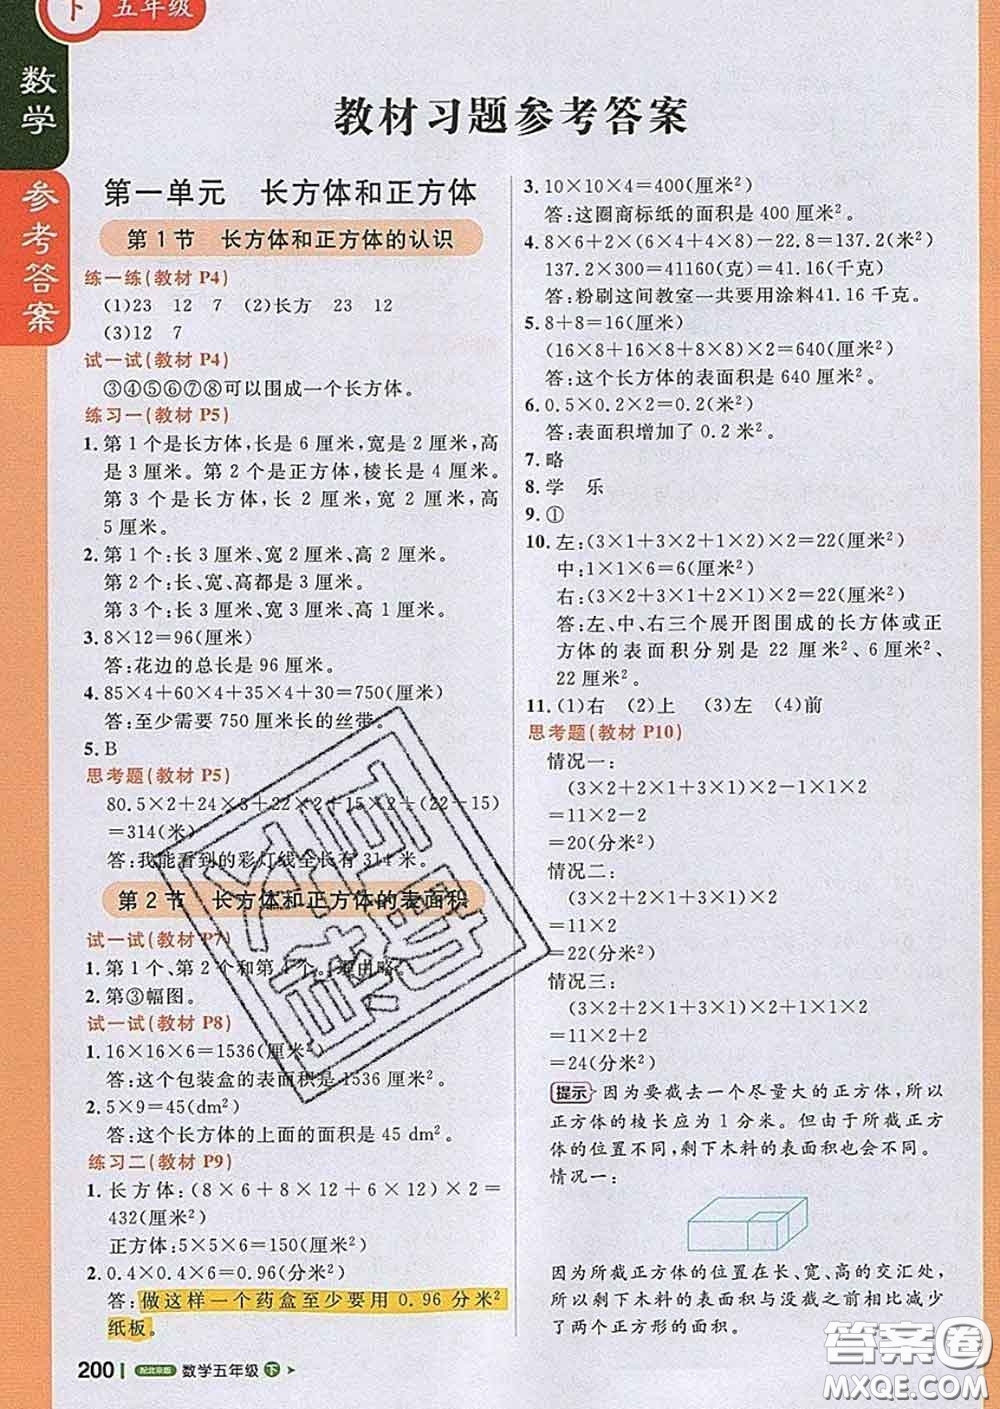 下 五年级
数学
参考答案
教材习题参考答案
第一单元 长方体和正方体
第1节 长方体和正方体的认识
练一练(教材 P4)
(1)23 12 7 (2)长方 23 12
(3)12 7
试一试(教材 P4)
③④⑤⑥⑦⑧可以围成一个长方体。
练习一(教材 P5)
1. 第1个是长方体,长是6厘米,宽是2厘米,高
是3厘米。第2个是正方体,棱长是4厘米。
第3个是长方体,长2厘米,宽2厘米,高
5厘米。
2. 第1个:长3厘米、宽2厘米、高2厘米。
第2个:长、宽、高都是3厘米。
第3个:长3厘米、宽1厘米、高3厘米。
3. 8×12=96(厘米)
答:花边的总长是96厘米。
4. 85×4+60×4+35×4+30=750(厘米)
答:至少需要750厘米长的丝带。
5. B
思考题(教材 P5)
80.5×2+24×3+22×2+15×2+(22-15)
=314(米)
答:我能看到的彩灯线全长有314米。
第2节 长方体和正方体的表面积
试一试(教材 P7)
1. 第1个、第2个和第4个。理由略。
2. 第③幅图。
试一试(教材 P8)
1. 16×16×6=1536(厘米²)
答:这个包装盒的表面积是1536厘米²。
2. 5×9=45(dm²)
答:这个长方体的上面的面积是45 dm²。
练习二(教材 P9)
1. 长方体:(8×6+8×12+6×12)×2=
432(厘米²)
正方体:5×5×6=150(厘米²)
2. 0.4×0.4×6=0.96(分米²)
答:做这样一个药盒至少要用0.96分米²
纸板。
200 配北京版 数学五年级 下
3. 10×10×4=400(厘米²)
答:这圈商标纸的面积是400厘米²。
4. 8×6+2×(6×4+4×8)-22.8=137.2(米²)
137.2×300=41160(克)=41.16(千克)
答:粉刷这间教室一共要用涂料41.16千克。
5. 8+8=16(厘米)
(16×8+16×8+8×8)×2=640(厘米²)
答:这个长方体的表面积是640厘米²。
6. 0.5×0.2×2=0.2(米²)
答:表面积增加了0.2米²。
7. 略
8. 学 乐
9. ①
10. 左:(3×1+3×2+1×2)×2=22(厘米²)
中:1×1×6=6(厘米²)
右:(3×2+3×1+2×1)×2=22(厘米²)
答:左、中、右三个展开图围成的长方体或正
方体的表面积分别是22厘米²、6厘米²、
22厘米²。
11. (1)右 (2)上 (3)左 (4)前
思考题(教材 P10)
情况一:
(3×2+2×1+3×1)×2-1×1×2
=11×2-2
=20(分米²)
情况二:
(3×2+2×1+3×1)×2
=11×2
=22(分米²)
情况三:
(3×2+2×1+3×1)×2+1×1×2
=11×2+2
=24(分米²)
提示 因为要截去一个尽量大的正方体,所以
正方体的棱长应为1分米。但由于所截正方
体的位置不同,剩下木料的表面积也会不同。
情况一:
因为所截正方体的位置在长、宽、高的交汇处,
所以剩下木料的表面积与没截之前相比减少
了两个正方形的面积。
答案圈
MXQE.COM